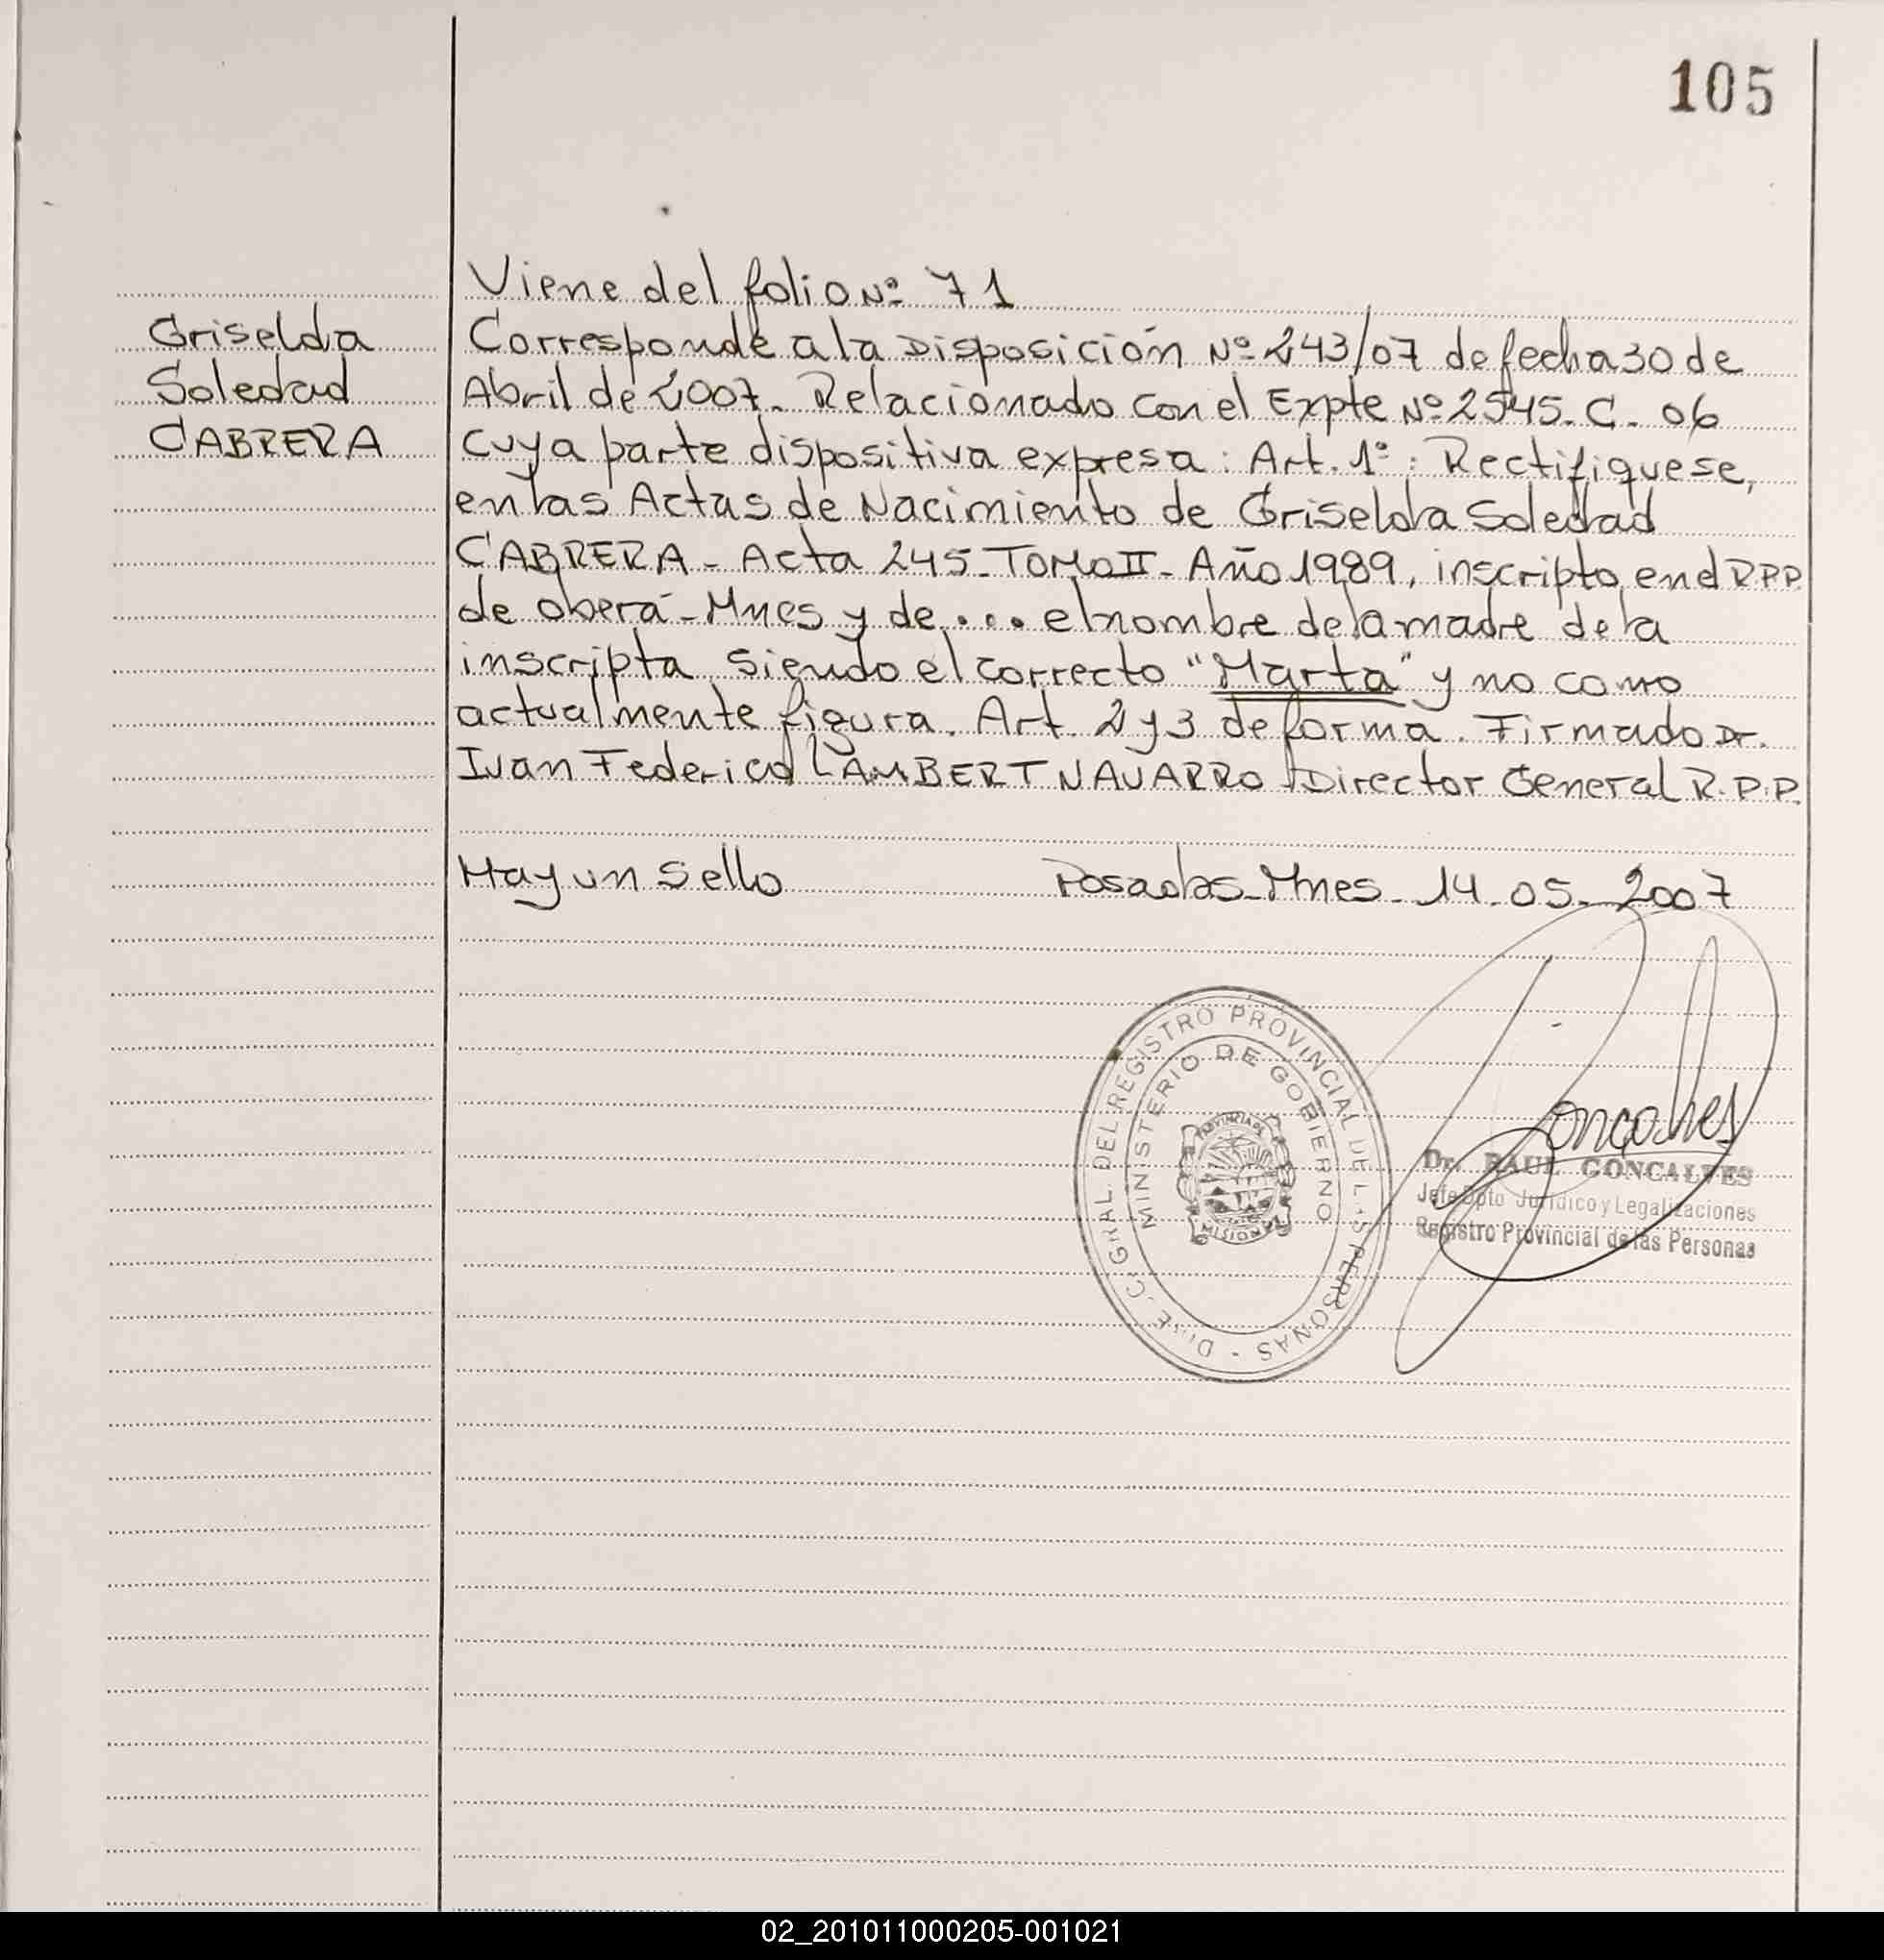 105
Viene del folio Nº 71
Griselda
Soledad
CABRERA
Corresponde a la Disposición Nº 243/07 de fecha 30 de
Abril de 2007. Relacionado con el Expte Nº 2545. C. 06
cuya parte dispositiva expresa: Art. 1º: Rectifiquese,
en las Actas de Nacimiento de Griselda Soledad
CABRERA - Acta 245 - TOMO II - Año 1989, inscripto en el R.P.P.
de Oberá - Mnes y de ... el nombre de la madre de la
inscripta, siendo el correcto "Marta" y no como
actualmente figura. Art. 2 y 3 de forma. Firmado Dr.
Ivan Federico LAMBERT NAVARRO Director General R.P.P.
Hay un Sello Posadas - Mnes - 14 - 05 - 2007
GRAL. DEL REGISTRO PROVINCIAL DE LAS PERSONAS -
MINISTERIO DE GOBIERNO
PROVINCIA DE
MISIONES
Goncalves
Dr. RAUL GONCALVES
Jefe Dpto Jurídico y Legalizaciones
Registro Provincial de las Personas
02_201011000205-001021